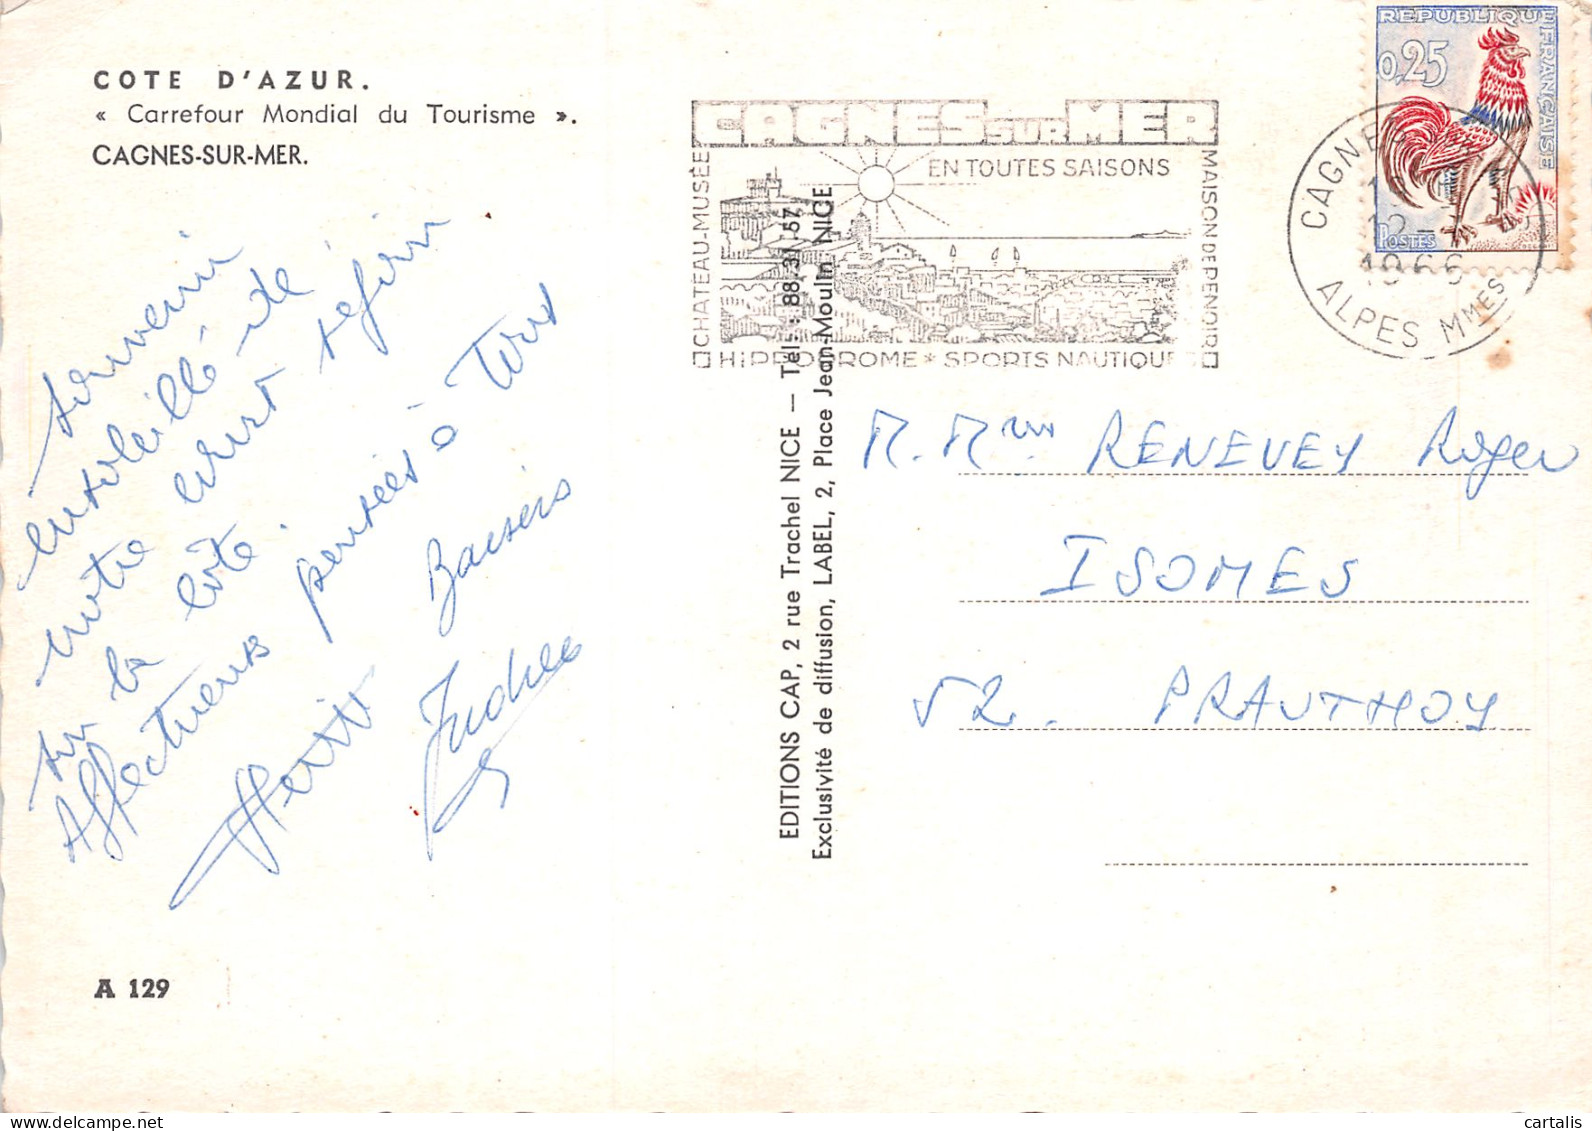 COTE D'AZUR.
« Carrefour Mondial du Tourisme ».
CAGNES-SUR-MER.
souvenir
ensoleillé de
notre court séjour
sur la côte.
Affectueuses pensées à Tous
Baisers
A 129
EDITIONS CAP, 2 rue Trachel NICE — Tél : 88.31.57
Exclusivité de diffusion, LABEL, 2, Place Jean-Moulin NICE
CAGNES SUR MER
EN TOUTES SAISONS
CHATEAU-MUSÉE
MAISON DE RENOIR
HIPPODROME * SPORTS NAUTIQUES
REPUBLIQUE FRANÇAISE
0,25
POSTES
CAGNES
12-
1966
ALPES MMES
M. Mme RENEVEY Roger
ISOMES
52. PRAUTHOY
cartalis
www.delcampe.net